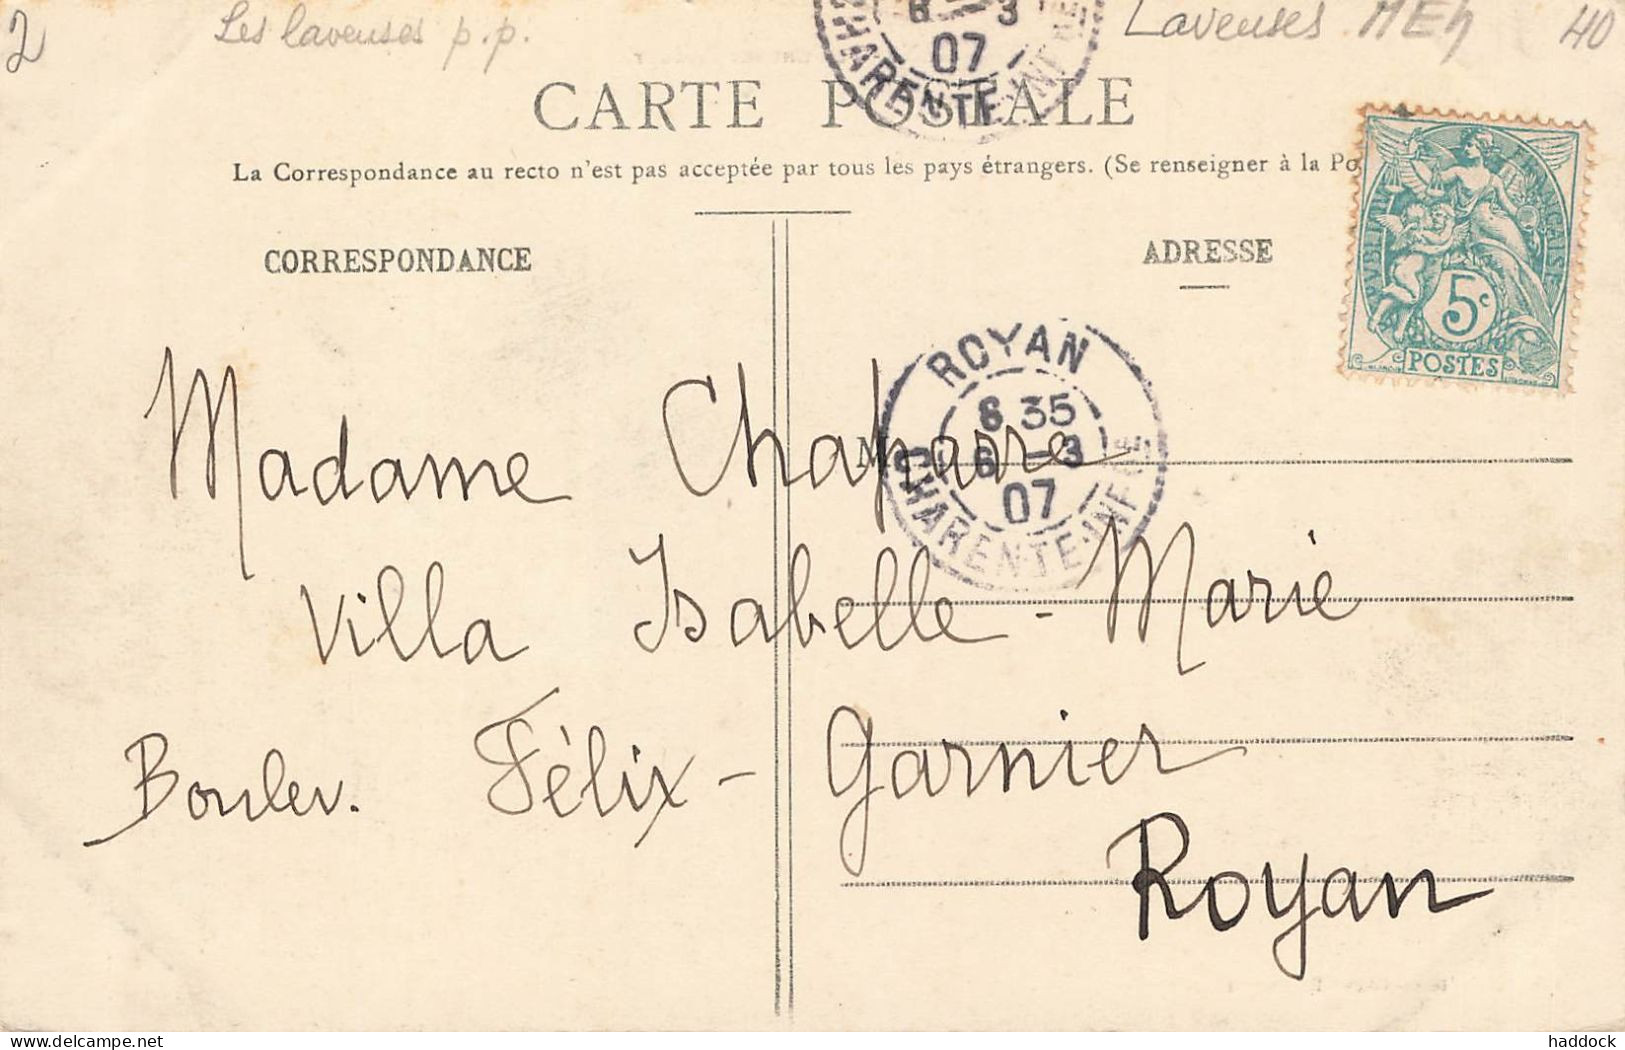 2
Les laveuses p.p.
Laveuses
40
6 -3
07
CHARENTE-INFRE
CARTE POSTALE
La Correspondance au recto n'est pas acceptée par tous les pays étrangers. (Se renseigner à la Po
CORRESPONDANCE
ADRESSE
5c
POSTES
ROYAN
6 35
6 -3
07
CHARENTE-INFRE
M
Madame Chaparre
Villa Isabelle-Marie
Boulev. Félix-Garnier
Royan
delcampe.net
haddock